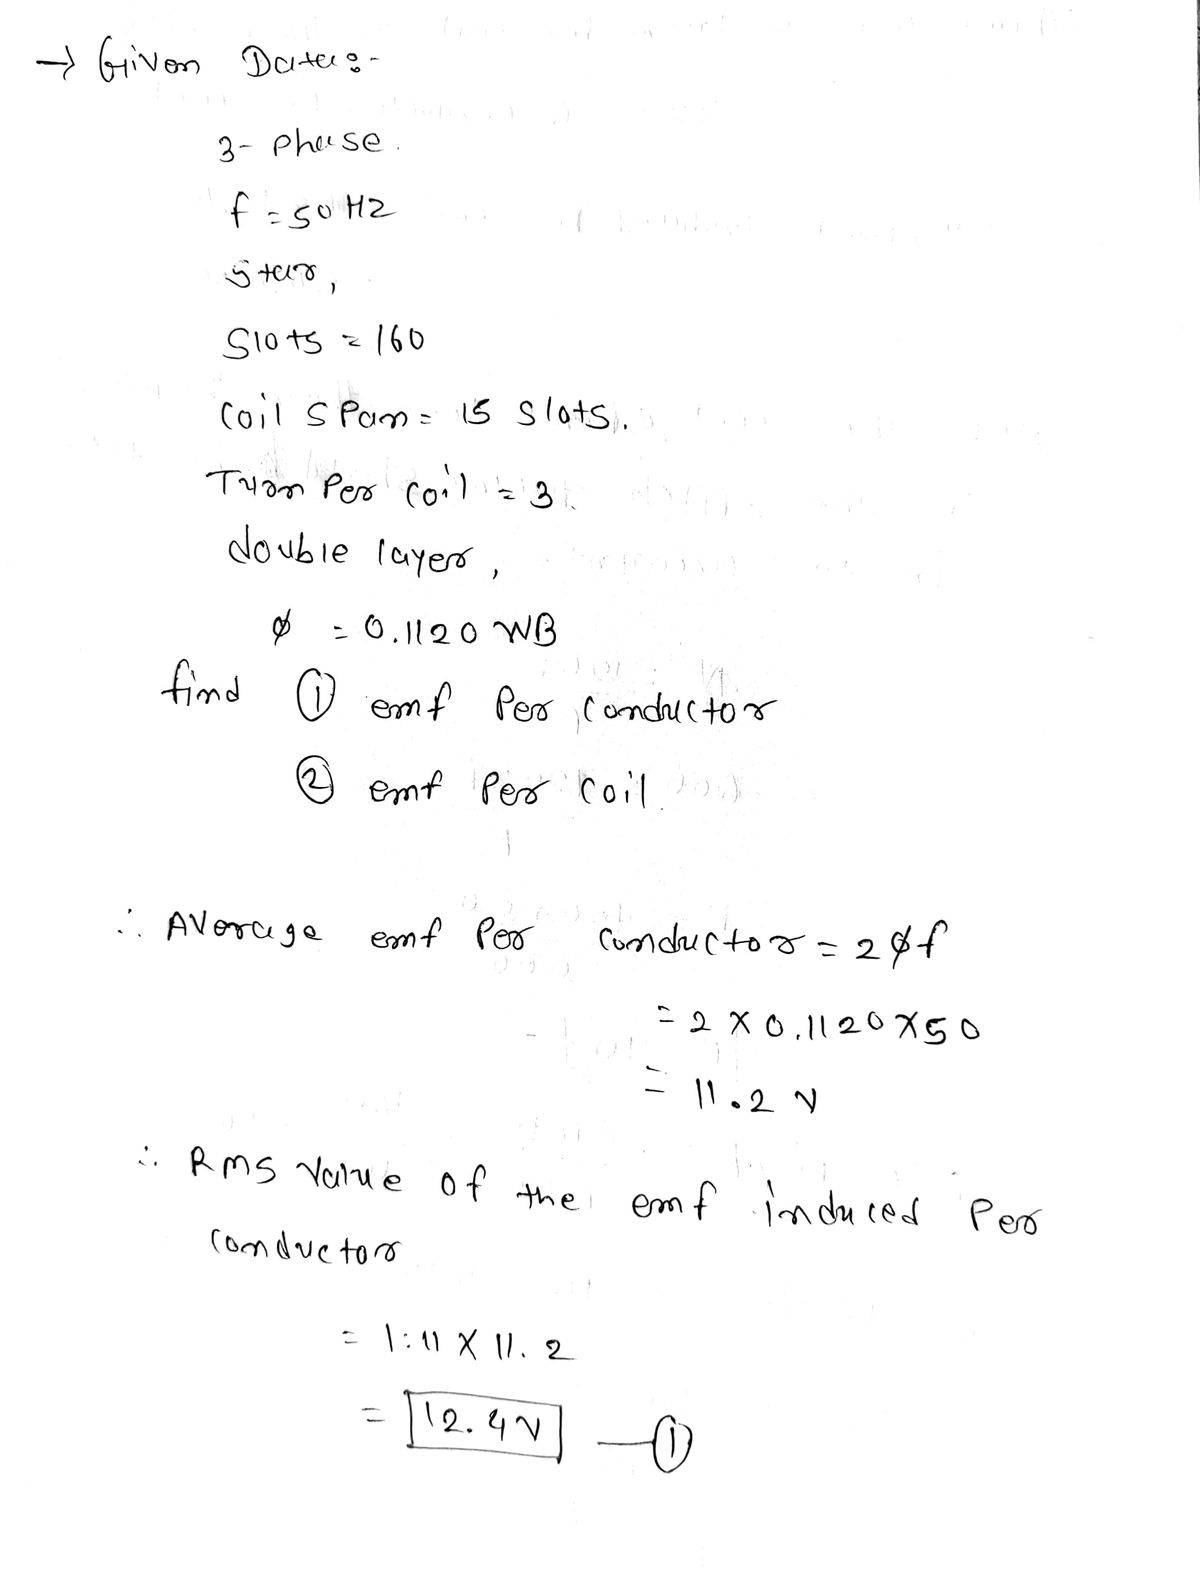 → Given Data:-
3- Phase.
f = 50 Hz
Star,
Slots = 160
Coil Span = 15 Slots.
Turn Per Coil = 3
double layer,
φ = 0.1120 WB
find ① emf Per Conductor
② emf Per Coil
∴ Average emf Per Conductor = 2φf
= 2 × 0.1120 × 50
= 11.2 V
∴ RMS Value of the emf induced Per
Conductor
= 1.11 × 11.2
= 12.4 V —①